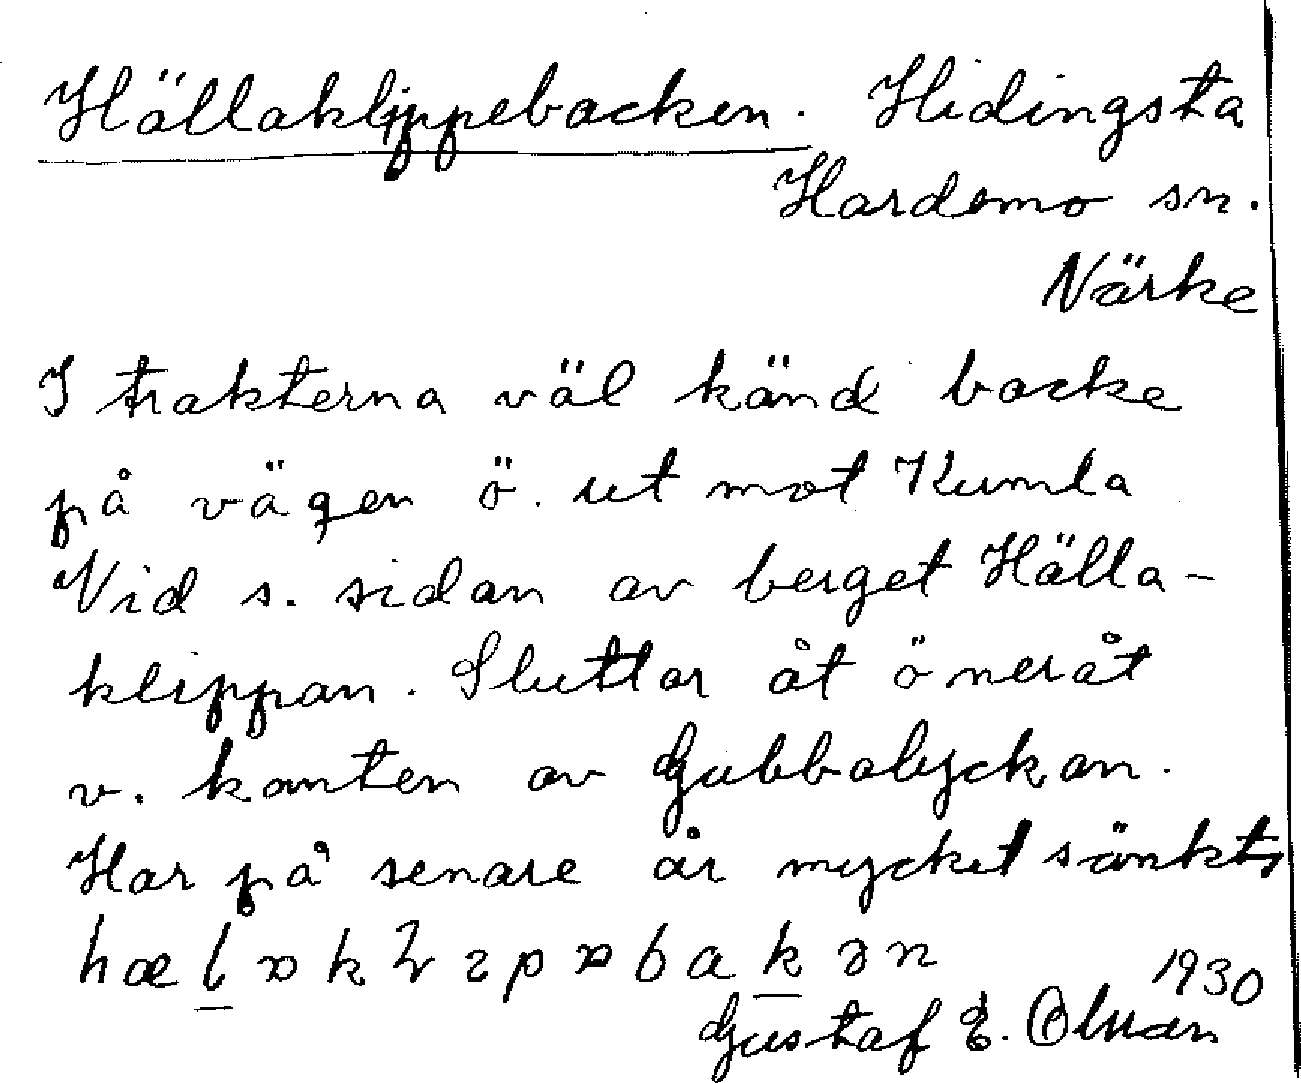 Hällaklippebacken. Hidingsta
Hardemo sn.
Närke
I trakterna väl känd backe
på vägen ö. ut mot Kumla
Vid s. sidan av berget Hälla-
klippan. Sluttar åt ö neråt
v. kanten av Gubbalyckan.
Har på senare år mycket sänkts
1930
Gustaf E.